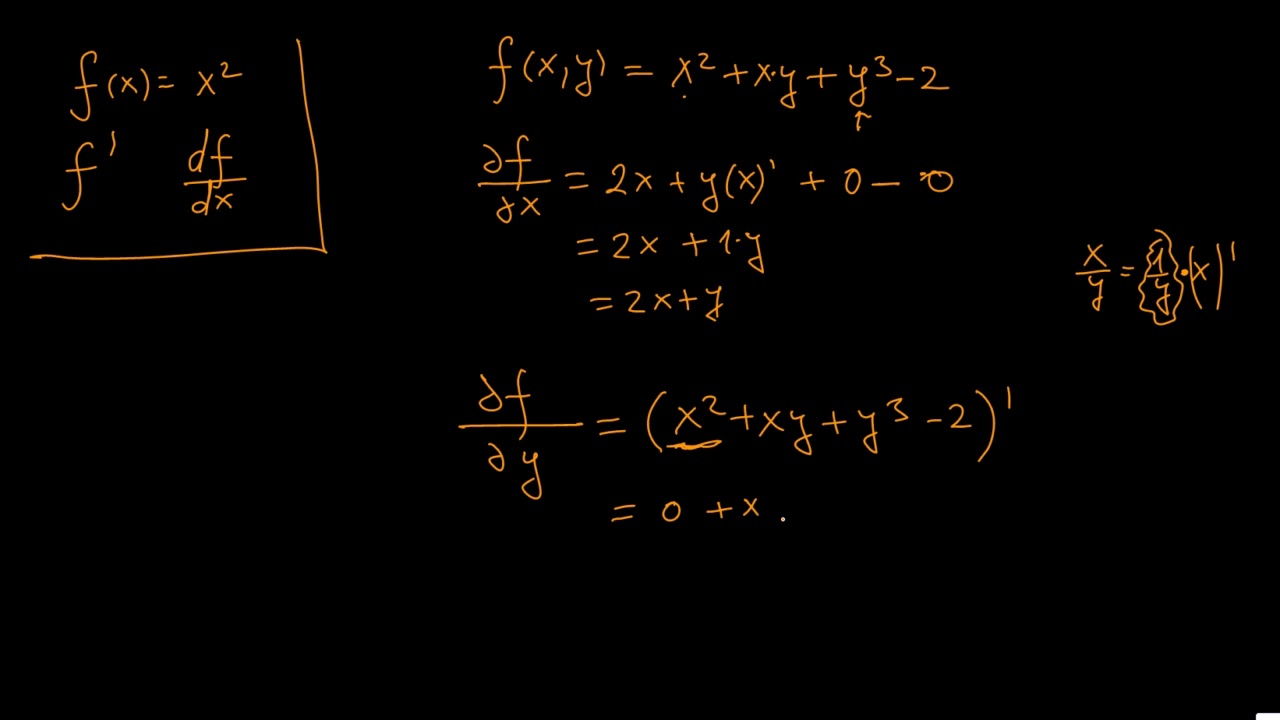 f(x) = x²
f' df/dx
f(x,y) = x² + x·y + y³ - 2
∂f/∂x = 2x + y(x)' + 0 - 0
= 2x + 1·y
= 2x + y
x/y = {1/y}·(x)'
∂f/∂y = (x² + xy + y³ - 2)'
= 0 + x .